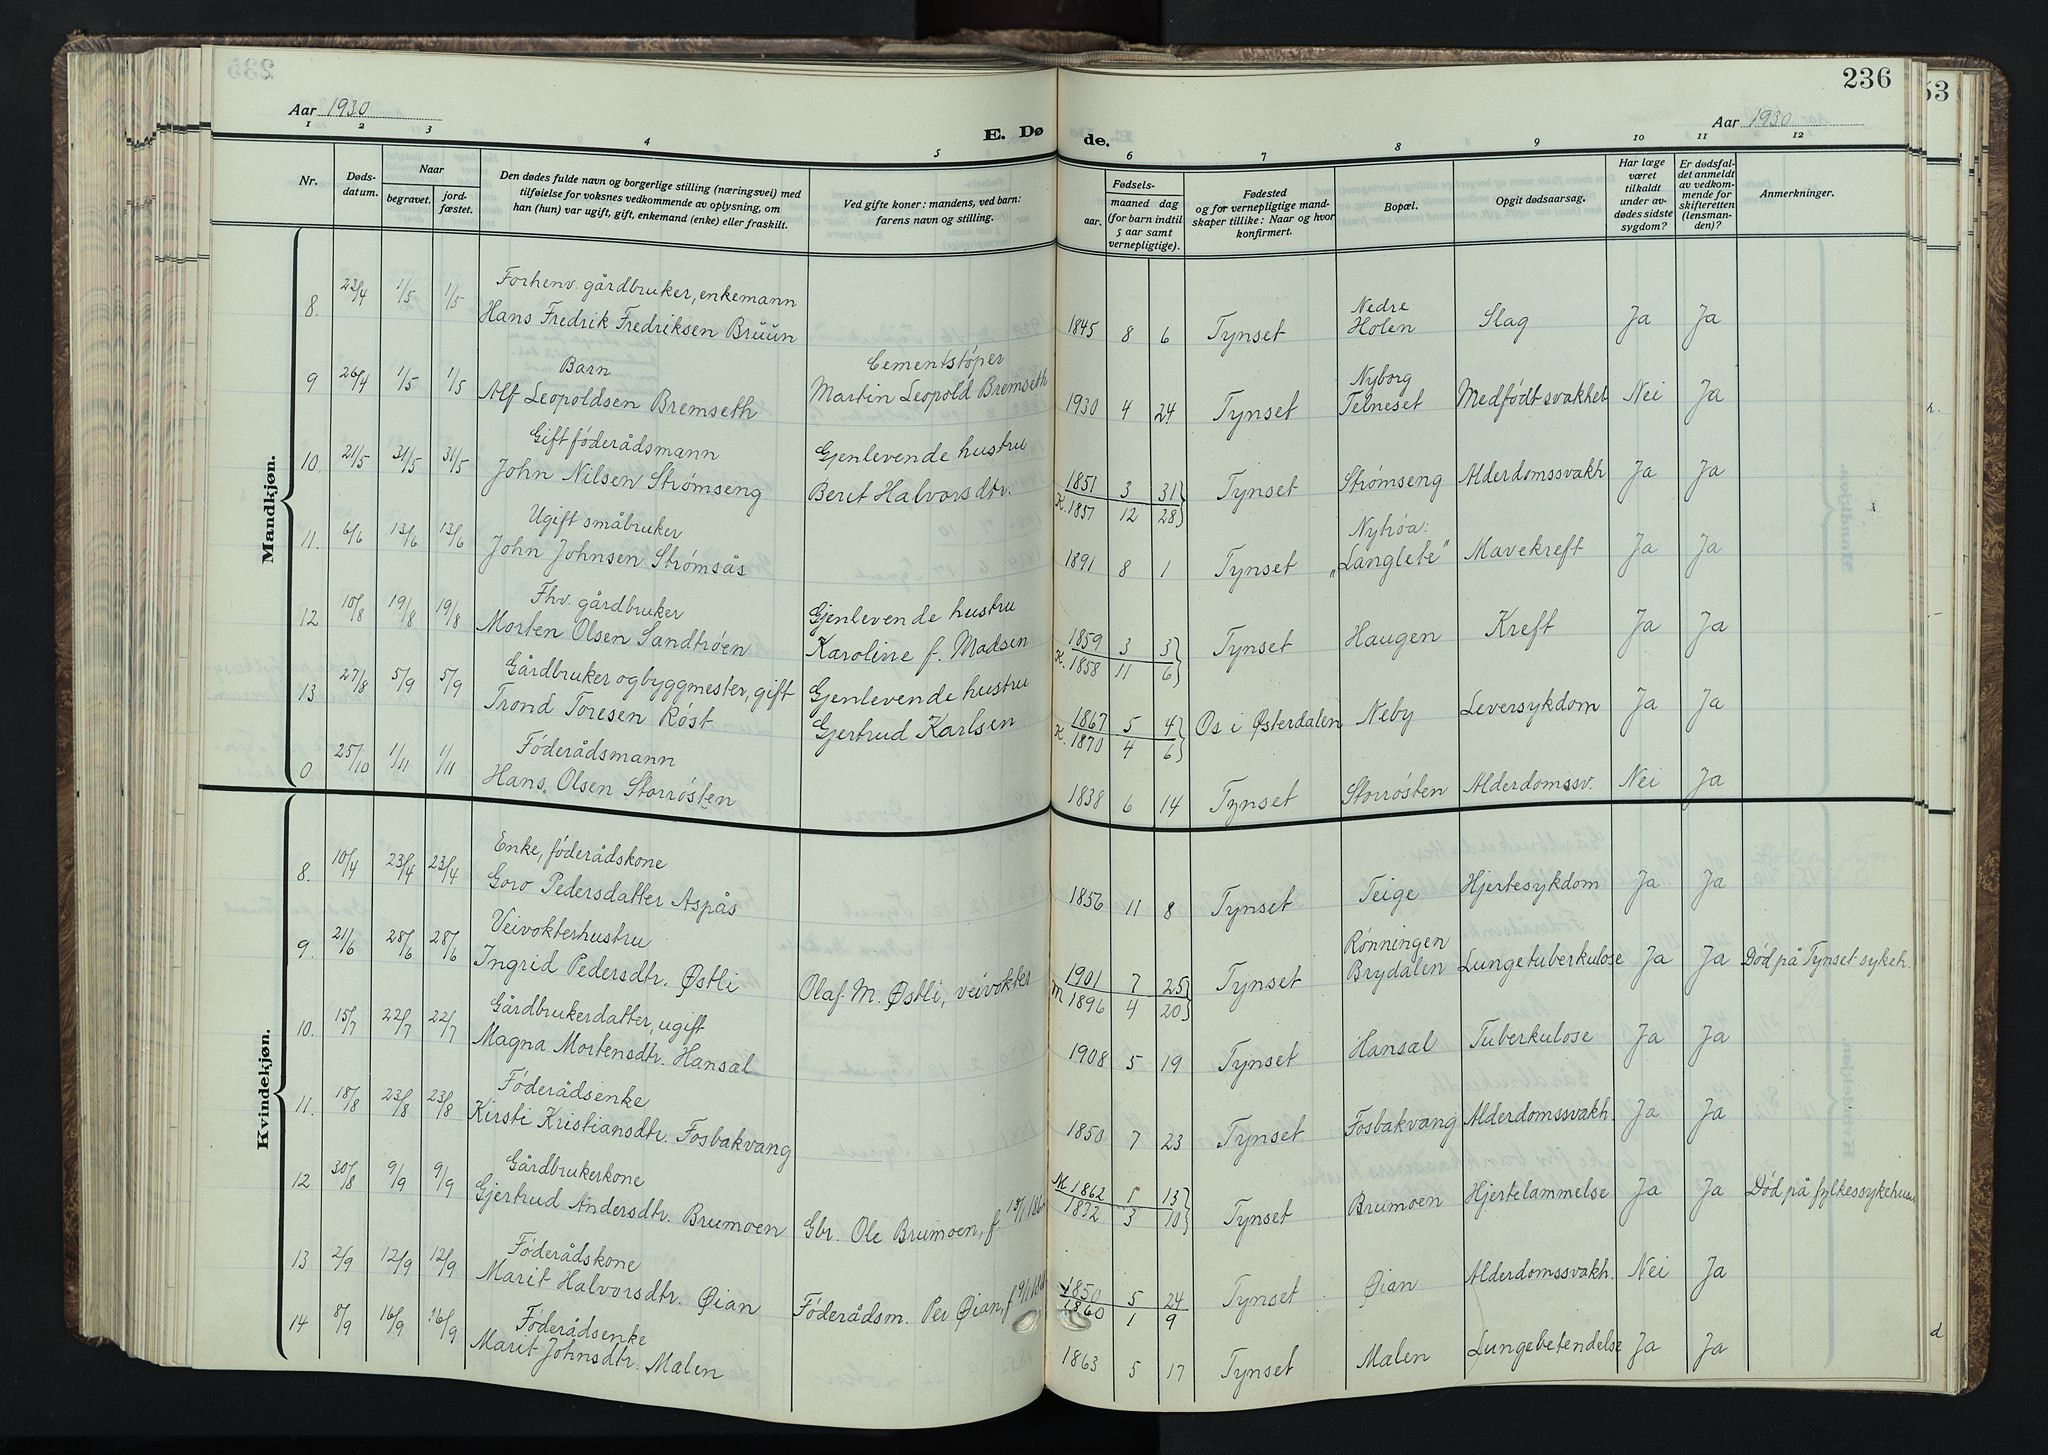 236
53
Aar 1930
Aar 1930
E. Dø
de.
1 2 3 4 5 6 7 8 9 10 11 12
Nr.
Døds-
datum.
Naar
begravet.
jord-
fæstet.
Den dødes fulde navn og borgerlige stilling (næringsvei) med
tilføielse for voksnes vedkommende av oplysning, om
han (hun) var ugift, gift, enkemand (enke) eller fraskilt.
Ved gifte koner: mandens, ved barn:
farens navn og stilling.
Fødsels-
aar. maaned dag
(for barn indtil
5 aar samt
vernepligtige).
Fødested
og for vernepligtige mand-
skaper tillike: Naar og hvor
konfirmert.
Bopæl.
Opgit dødsaarsag.
Har læge
været
tilkaldt
under av-
dødes sidste
sygdom?
Er dødsfal-
det anmeldt
av vedkom-
mende for
skifteretten
(lensman-
den)?
Anmerkninger.
Mandkjøn.
Forhenv. gårdbruker, enkemann Nedre
8. 23/4 1/5 1/5 Hans Fredrik Fredriksen Bruun 1845 8 6 Tynset Holen Slag Ja Ja
Barn Cementstøper Nyborg
9 26/4 1/5 1/5 Alf Leopoldsen Bremseth Martin Leopold Bremseth 1930 4 24 Tynset Telneset Medfødt svakhet Nei Ja
Gift føderådsmann Gjenlevende hustru 1851 3 31
10. 21/5 31/5 31/5 John Nilsen Strømseng Berit Halvorsdtr. K. 1857 12 28 Tynset Strømseng Alderdomssvakh Ja Ja
Ugift småbruker Nytrøa:
11. 6/6 13/6 13/6 John Johnsen Strømsås 1891 8 1 Tynset „Langlete" Mavekreft Ja Ja
Fhv. gårdbruker Gjenlevende hustru 1859 3 3
12 10/8 19/8 19/8 Morten Olsen Sandtrøen Karoline f. Madsen K. 1858 11 6 Tynset Haugen Kreft Ja Ja
Gårdbruker og byggmester, gift Gjenlevende hustru 1867 5 4
13 27/8 5/9 5/9 Trond Toresen Røst Gjertrud Karlsen K. 1870 4 6 Os i Østerdalen Neby Leversykdom Ja Ja
Føderådsmann
0 25/10 1/11 1/11 Hans Olsen Storrøsten 1838 6 14 Tynset Storrøsten Alderdomssv. Nei Ja
Kvindekjøn.
Enke, føderådskone
8. 10/4 23/4 23/4 Goro Pedersdatter Aspås 1856 11 8 Tynset Teige Hjertesykdom Ja Ja
Veivokterhustru 1901 7 25 Rønningen
9. 21/6 28/6 28/6 Ingrid Pedersdtr. Østli Olaf M. Østli, veivokter M 1896 4 20 Tynset Brydalen Lungetuberkulose Ja Ja Død på Tynset sykeh.
Gårdbrukerdatter, ugift
10. 15/7 22/7 22/7 Magna Mortensdtr. Hansæl 1908 5 19 Tynset Hansæl Tuberkulose Ja Ja
Føderådsenke
11. 18/8 23/8 23/8 Kirsti Kristiansdtr. Fosbakvang 1850 7 23 Tynset Fosbakvang Alderdomssvakh. Ja Ja
Gårdbrukerkone M. 1862 1 13
12 30/8 9/9 9/9 Gjertrud Andersdtr. Brumoen Gbr. Ole Brumoen, f. 1872 3 10 Tynset Brumoen Hjertelammelse Ja Ja Død på fylkessykehuset
Føderådskone 1850 5 24
13 2/9 12/9 12/9 Marit Halvorsdtr. Øian Føderådsm. Per Øian, f. 1860 1 9 Tynset Øian Alderdomssvakh. Nei Ja
Føderådsenke
14 8/9 16/9 16/9 Marit Johnsdtr. Malen 1863 5 17 Tynset Malen Lungebetendelse Ja Ja